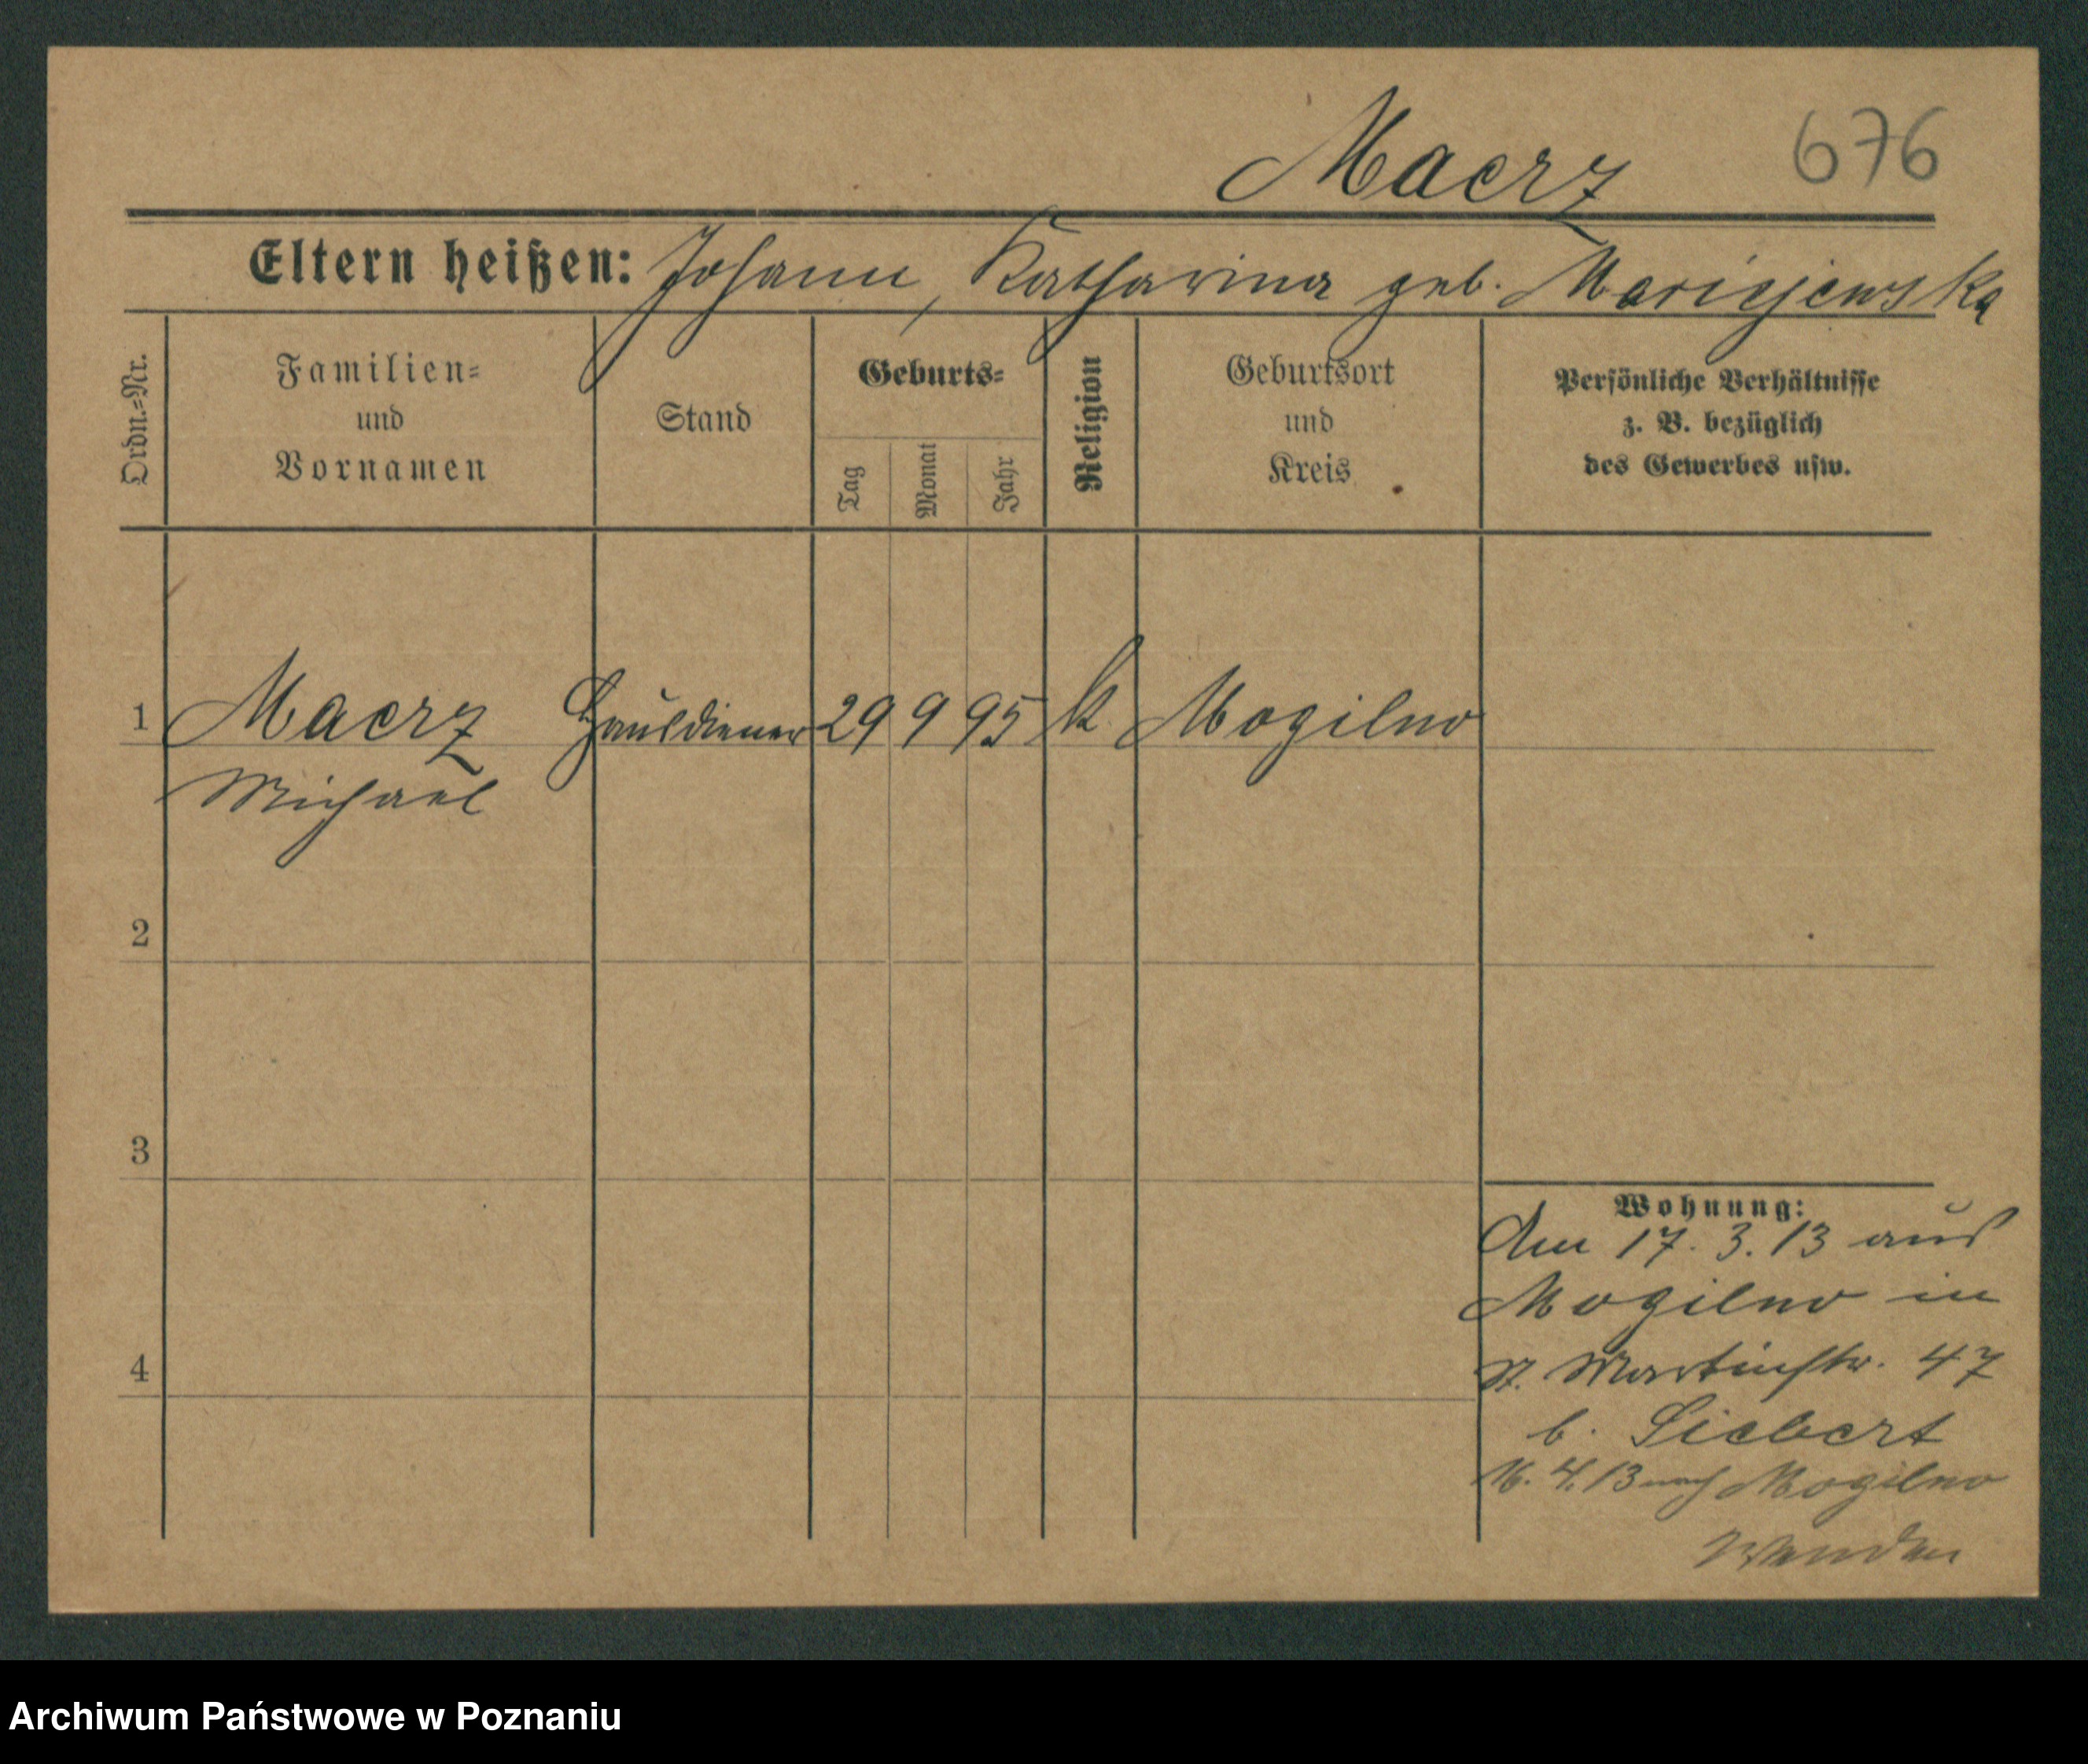 Maerz 676
Eltern heißen: Johann, Katharina geb. Mariejewska
Ordn.=Nr.
Familien=
und
Vornamen
Stand
Geburts=
Tag
Monat
Jahr
Religion
Geburtsort
und
Kreis
Persönliche Verhältnisse
z. B. bezüglich
des Gewerbes usw.
1 Maerz Hausdiener 29 9 95 k. Mogilno
Michael
2
3
4
Wohnung:
Am 17. 3. 13 aus
Mogilno in
St. Martinstr. 47
b. Siebert
16. 4. 13 nach Mogilno
Wenden
Archiwum Państwowe w Poznaniu